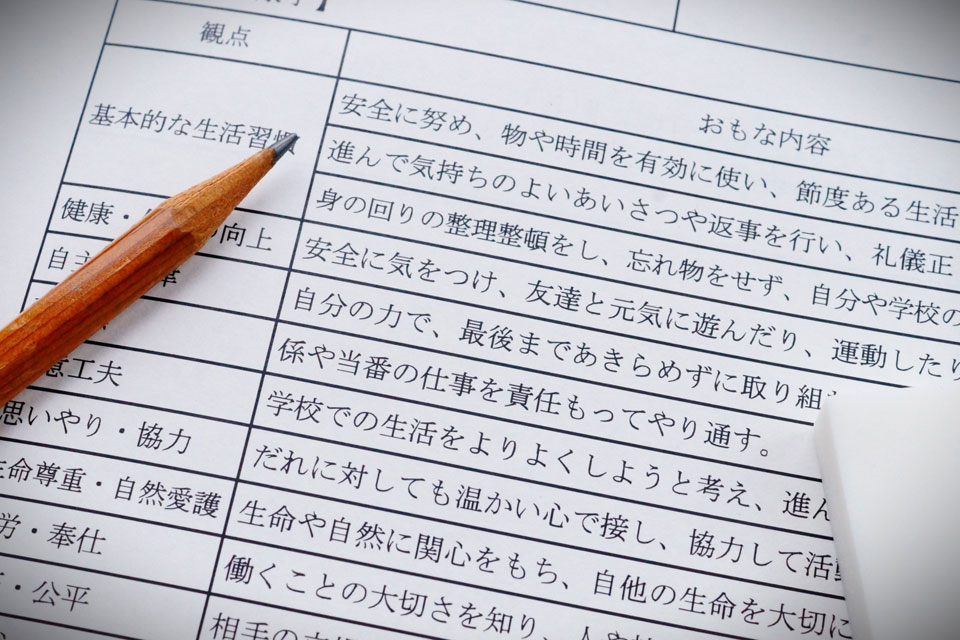 観点
おもな内容
基本的な生活習慣
安全に努め、物や時間を有効に使い、節度ある生活
進んで気持ちのよいあいさつや返事を行い、礼儀正
身の回りの整理整頓をし、忘れ物をせず、自分や学校の
健康・の向上
安全に気をつけ、友達と元気に遊んだり、運動したり
自主
自分の力で、最後まであきらめずに取り組
係や当番の仕事を責任もってやり通す。
意工夫
学校での生活をよりよくしようと考え、進ん
思いやり・協力
だれに対しても温かい心で接し、協力して活動
生命尊重・自然愛護
生命や自然に関心をもち、自他の生命を大切に
労・奉仕
働くことの大切さを知り、人や
・公平
相手の立場